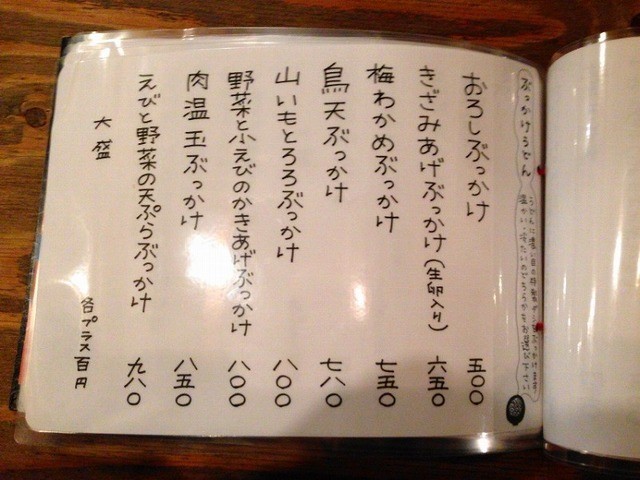 ぶっかけうどん
うどんに濃い目の特製ダシをぶっかけます
温かい・冷たいのどちらかをお選び下さい
おろしぶっかけ 五〇〇
きざみあげぶっかけ(生卵入り) 六五〇
梅わかめぶっかけ 七五〇
鳥天ぶっかけ 七八〇
山いもとろろぶっかけ 八〇〇
野菜と小えびのかきあげぶっかけ 八〇〇
肉温玉ぶっかけ 八五〇
えびと野菜の天ぷらぶっかけ 九八〇
大盛 各プラス百円